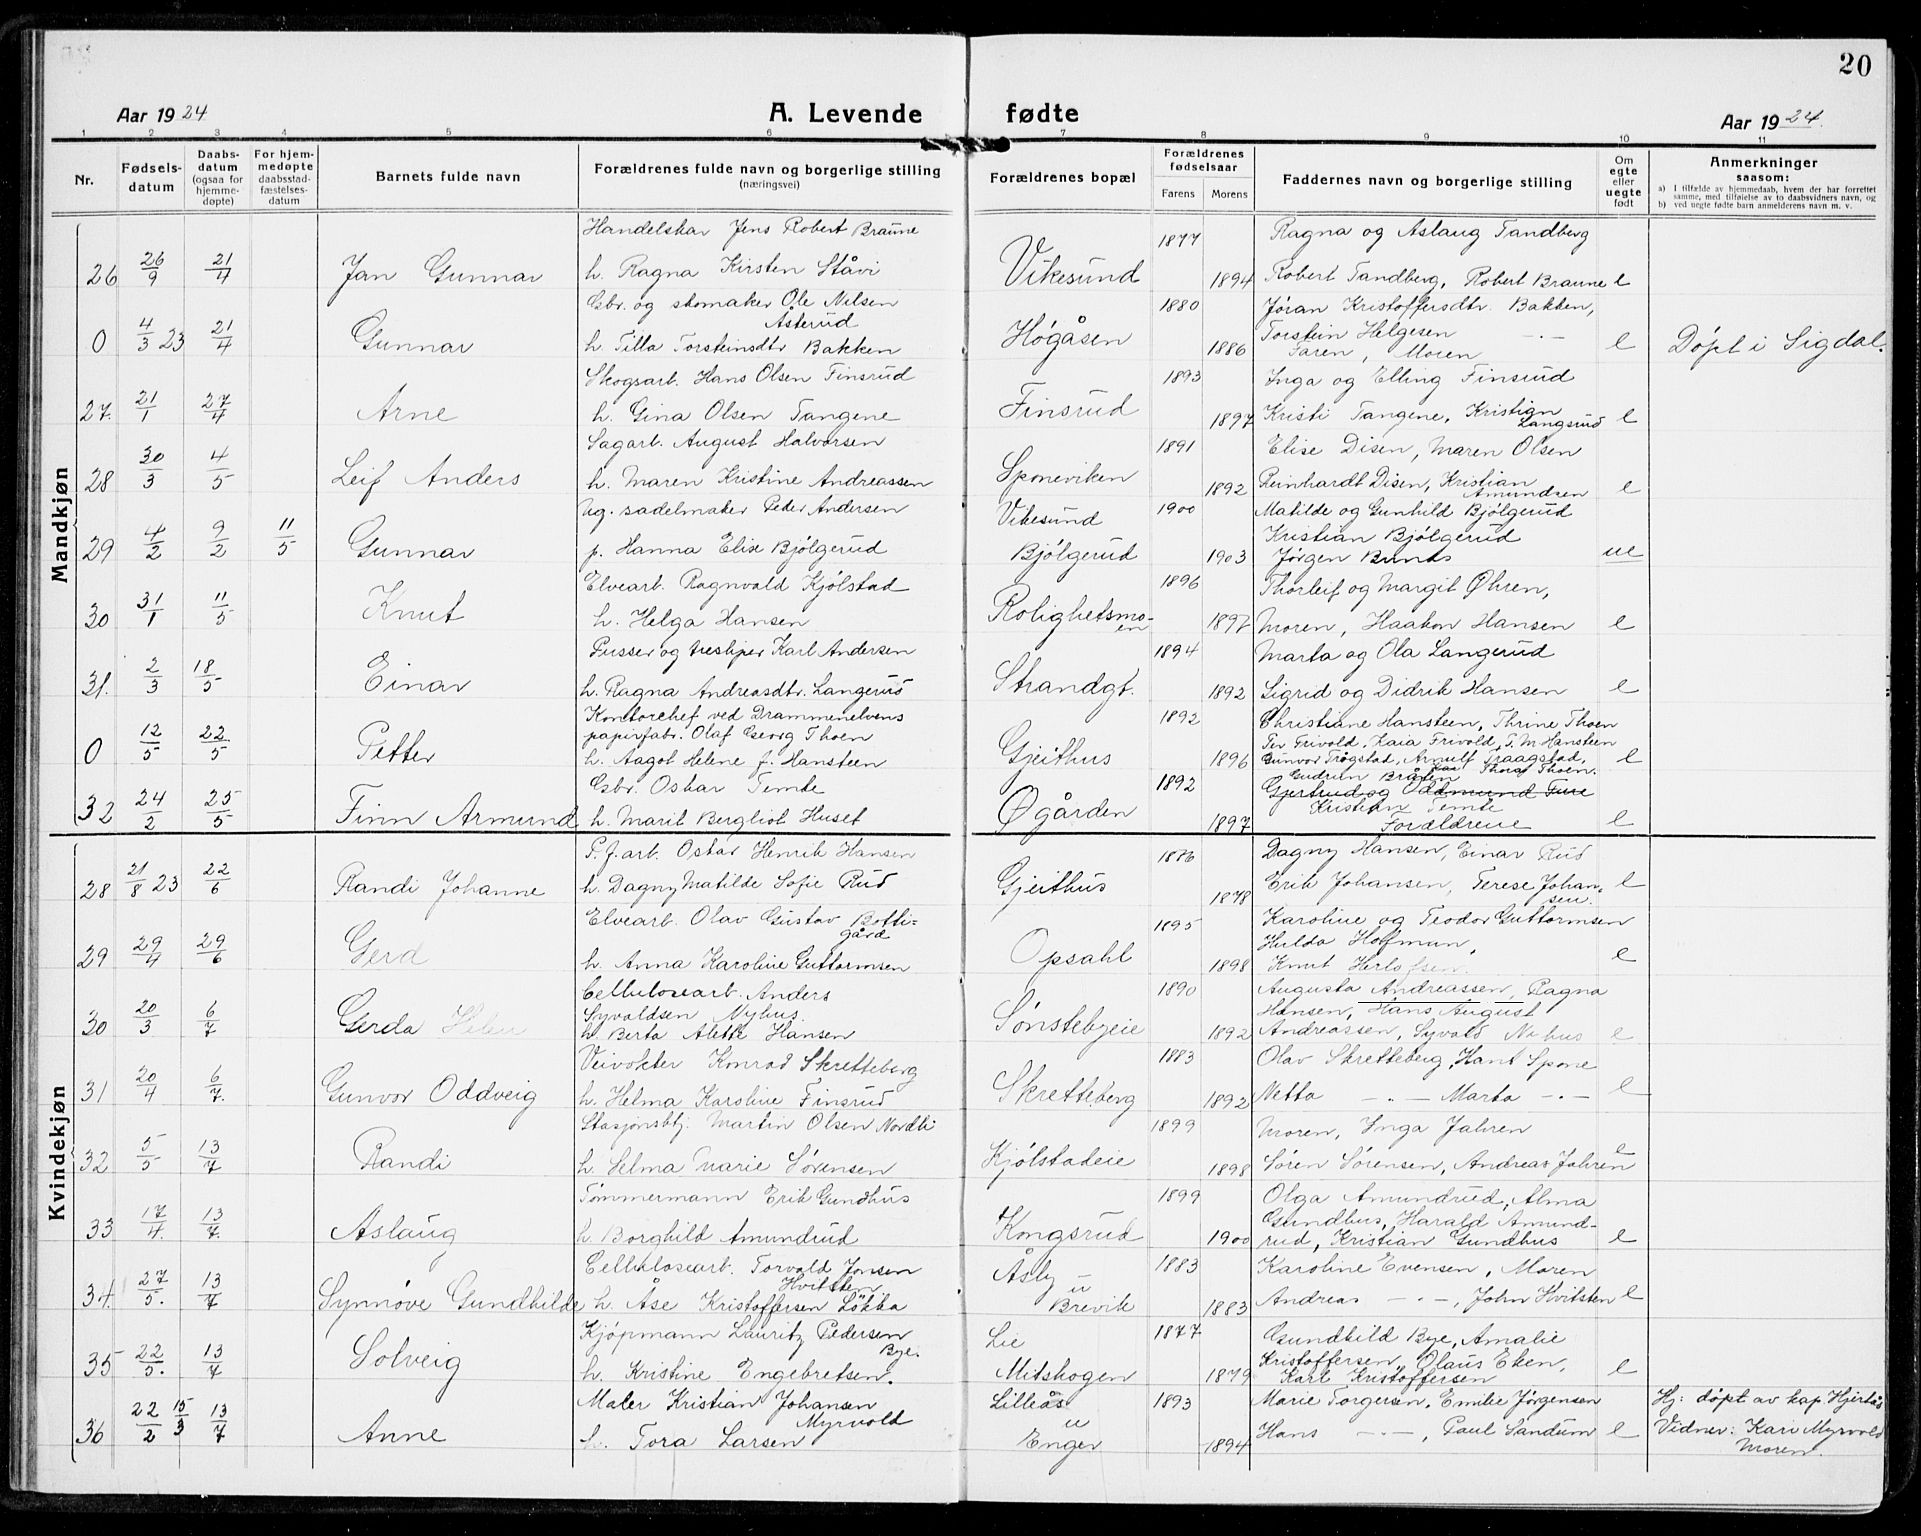 20
Aar 1924 A. Levende fødte Aar 1924.
1 2 3 4 5 6 7 8 9 10 11
Nr. Fødselsdatum Daabsdatum (ogsaa for hjemmedøpte) For hjemmedøpte daabsstadfæstelsesdatum Barnets fulde navn Forældrenes fulde navn og borgerlige stilling (næringsvei) Forældrenes bopæl Forældrenes fødselsaar Farens Morens Faddernes navn og borgerlige stilling Om egte eller uegte født Anmerkninger saasom:
a) I tilfælde av hjemmedaab, hvem der har forrettet samme, med tilføielse av to daabsvidners navn, og
b) ved uegte fødte barn anmelderens navn m. v.
Mandkjøn
Handelskar Jens Robert Braune 1877 Ragna og Aslaug Tandberg
26 26/9 21/4 Jan Gunnar h. Ragna Kirsten Ståvi Vikesund 1894 Robert Tandberg, Robert Braune e
Gbr. og skomaker Ole Nilsen Åsterud 1880 Jøran Kristoffersdtr. Bakken,
0 4/3 23 21/4 Gunnar h. Tilla Torsteinsdtr Bakken Høgåsen 1886 Torstein Helgesen -"- Faren, Moren e Døpt i Sigdal.
Skogsarb. Hans Olsen Finsrud 1893 Inga og Elling Finsrud
27. 21/1 27/4 Arne h. Gina Olsen Tangene Finsrud 1897 Kristi Tangene, Kristian Langsrud e
Sagarb. August Halvorsen 1891 Elise Disen, Maren Olsen
28 30/3 4/5 Leif Anders h. Maren Kristine Andreassen Sponeviken 1892 Reinhardt Disen, Kristian Amundsen e
Ug. sadelmaker Peder Andersen Vikesund 1900 Matilde og Gunhild Bjølgerud
29 4/2 9/2 11/5 Gunnar p. Hanna Elise Bjølgerud Bjølgerud 1903 Kristian Bjølgerud Jørgen Bunds ue
Elvearb. Ragnvald Kjølstad 1896 Thorleif og Margit Øhren,
30 31/1 11/5 Knut h. Helga Hansen Rolighetsmoen 1897 Moren, Haakon Hansen e
Pusser og tresliper Karl Andersen 1894 Marta og Ola Langerud
31. 2/3 18/5 Einar h. Ragna Andreasdtr. Langerud Strandgt. 1892 Sigrid og Didrik Hansen e
Kontorchef ved Drammenelvens papirfabr. Olaf Georg Thoen 1892 Christiane Hansteen, Thrine Thoen
0 12/5 22/5 Petter h. Aagot Helene f. Hansteen Gjeithus 1896 Per Frivold, Kaia Frivold, T. M Hansteen Gunvor Trøgstad, Arnulf Traagstad, Thoen. e
Gbr. Oskar Temte 1892 Gudrun Bråten Gjertrud og Oddmund Ture
32 24/2 25/5 Finn Armund h. Marit Bergliot Huset Øgården 1897 Kristian Temte Forældrene e
Kvindekjøn
P. f. arb. Oskar Henrik Hansen 1876 Dagny Hansen, Einar Rud
28 21/8 23 22/6 Randi Johanne h. Dagny Matilde Sofie Rud Gjeithus 1878 Erik Johansen, Terese Johansen. e
Elvearb. Olav Gustav Bottigård 1895 Karoline og Teodor Guttormsen
29 29/4 29/6 Gerd h. Anna Karoline Guttormsen Opsahl 1898 Hulda Hoffman, Knut Herlofsen. e
Cellulosearb. Anders Syvaldsen Nyhus 1890 Augusta Andreassen, Ragna Hansen, Hans August
30 20/3 6/7 Gerda Helen h. Berta Alette Hansen Sønstebyeie 1892 Andreassen, Syvald Nyhus e
Veivokter Konrad Skretteberg 1883 Olav Skretteberg, Hans Spone
31 20/4 6/7. Gunvor Oddveig h. Helma Karoline Finsrud Skretteberg 1892 Netta -"- Marta -"- e
Stasjonsbtj. Martin Olsen Nordli 1899 Moren, Inga Jahren
32 5/5 13/7 Randi h. Selma Marie Sørensen Kjølstadeie 1898 Søren Sørensen, Andreas Jahren e
Tømmermann Erik Gundhus 1899 Olga Amundrud, Alma
33 17/4. 13/7. Aslaug h. Borghild Amundrud Kongsrud 1900 Gundhus, Harald Amundrud, Kristian Gundhus e
Cellulosearb. Torvald Jonsen Hvitsten Åsby u 1883 Karoline Evensen, Moren
34. 27/5. 13/7 Synnøve Gundhilde h. Åse Kristoffersen Løkka Brevik 1883 Andreas -"-, John Hvitsten e
Kjøpmann Lauritz Pedersen Bye. Lie 1877 Gundhild Bye, Amalie
35 22/5. 13/7 Solveig h. Kristine Engebretsen. Mitskogen 1879 Kristoffersen, Olaus Eken, Karl Kristoffersen e
Maler Kristian Johansen Myrvold Lilleås u 1893 Marie Torgersen, Emilie Jørgensen Hj: døpt av kap. Hjertås
36 22/2 15/3 13/7 Anne h. Tora Larsen Enger 1894 Hans -"-, Paul Sandum e Vidner: Kari Myrvold Moren.